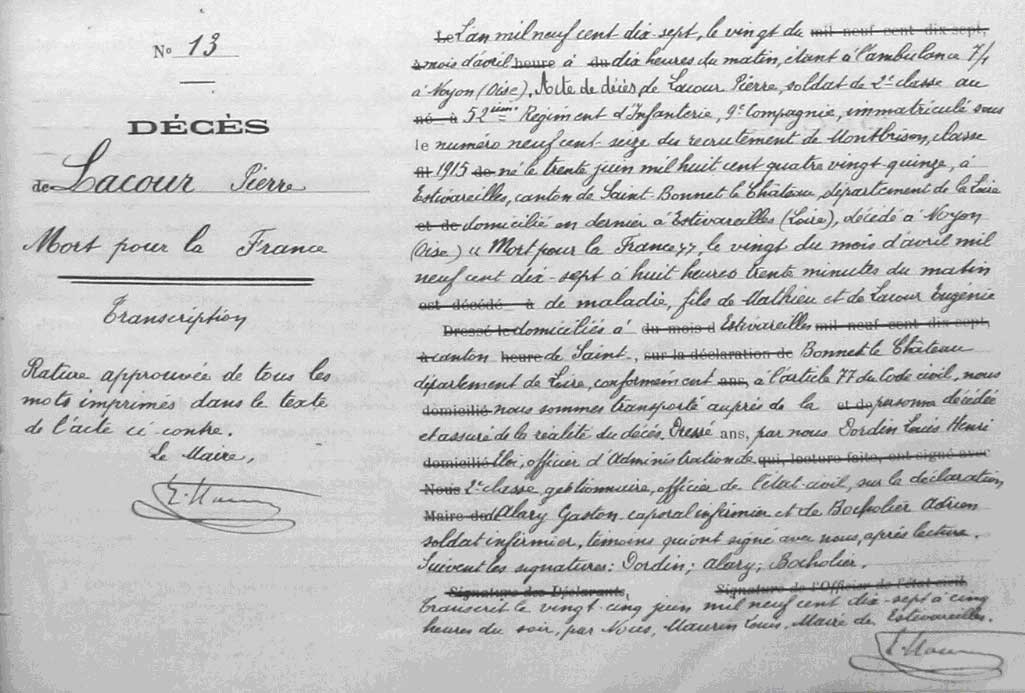 N° 13
DÉCÈS
de Lacour Pierre
Mort pour la France
Transcription
Rature approuvée de tous les
mots imprimés dans le texte
de l'acte ci-contre.
Le Maire,
L. Maurin
Le L'an mil neuf cent dix-sept, le vingt du mil neuf cent dix sept,
à mois d'avril heure à du dix heures du matin, étant à l'ambulance 7/1
à Noyon (Oise), Acte de décès de Lacour Pierre, soldat de 2e classe au
né à 52ième Régiment d'Infanterie, 9e Compagnie, immatriculé sous
le numéro neuf cent-seize des recrutement de Montbrison, classe
1915 de né le trente juin mil huit cent quatre vingt-quinze, à
Estivareilles, canton de Saint-Bonnet le Château, département de la Loire
et de domicilié en dernier à Estivareilles (Loire), décédé à Noyon
(Oise) « Mort pour la France », le vingt du mois d'avril mil
neuf cent dix-sept à huit heures trente minutes du matin
est décédé à de maladie, fils de Mathieu et de Lacour Eugénie
Dressé le domiciliés à du mois d Estivareilles mil neuf cent dix sept,
à canton heure de Saint, sur la déclaration de Bonnet le Château
département de Loire, conformément ans, à l'article 77 du Code civil, nous
domicilié nous sommes transporté auprès de la et de personne décédée
et assuré de la réalité du décès. Dressé ans, par nous Dordin Louis Henri
domicilié Eloi, officier d'Administration de qui, lecture faite, ont signé avec
Nous 2e classe gestionnaire, officier de l'état-civil, sur la déclaration
Maire de d'Alary Gaston caporal infirmier et de Bocholier Adrien
soldat infirmier, témoins qui ont signé avec nous, après lecture.
Suivent les signatures: Dordin; Alary; Bocholier.
Signature des Déclarants, Signature de l'Officier de l'état civil
Transcrit le vingt-cinq juin mil neuf cent dix-sept à cinq
heures du soir, par Nous, Maurin Louis, Maire de Estivareilles.
L. Maurin